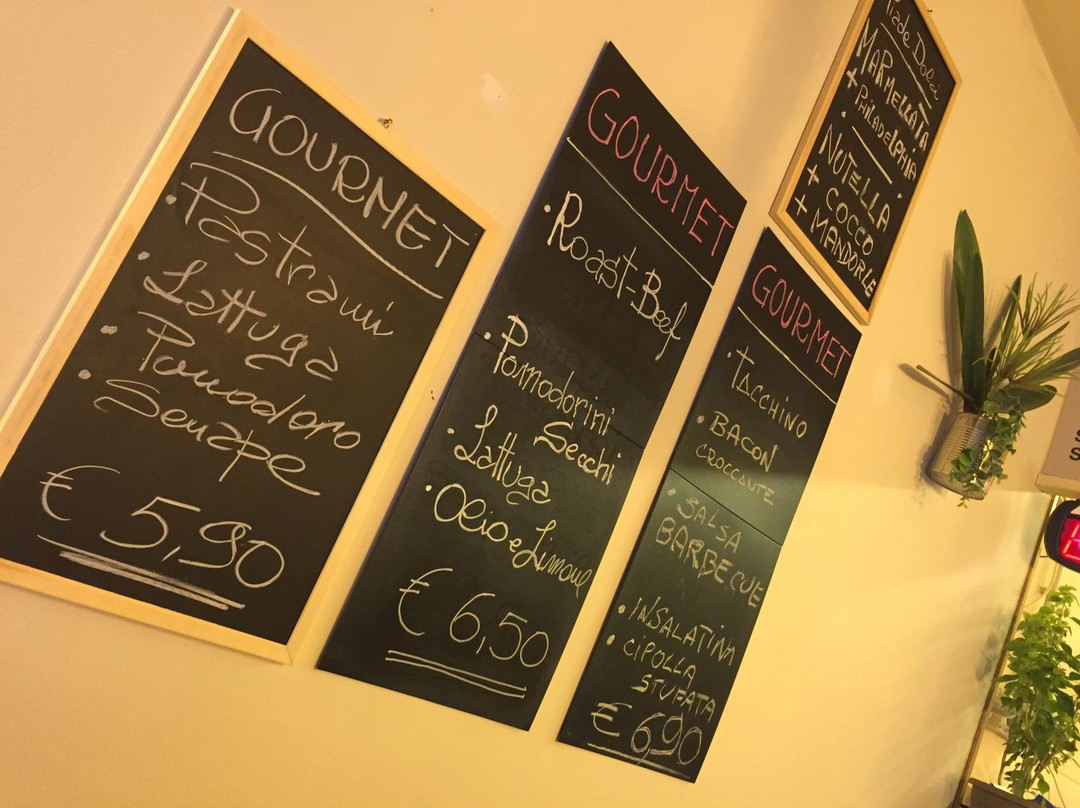 GOURMET
• Pastrami
• Lattuga
• Pomodoro
• Senape
€ 5,90
GOURMET
• Roast-Beef
• Pomodorini
Secchi
• Lattuga
• Olio e Limone
€ 6,50
GOURMET
• TACCHINO
• BACON
CROCCANTE
• SALSA
BARBECUE
• INSALATINA
• CIPOLLA
STUFATA
€ 6,90
Piade Dolci
MARMELLATA
+ PHILADELPHIA
NUTELLA
+ COCCO
+ MANDORLE